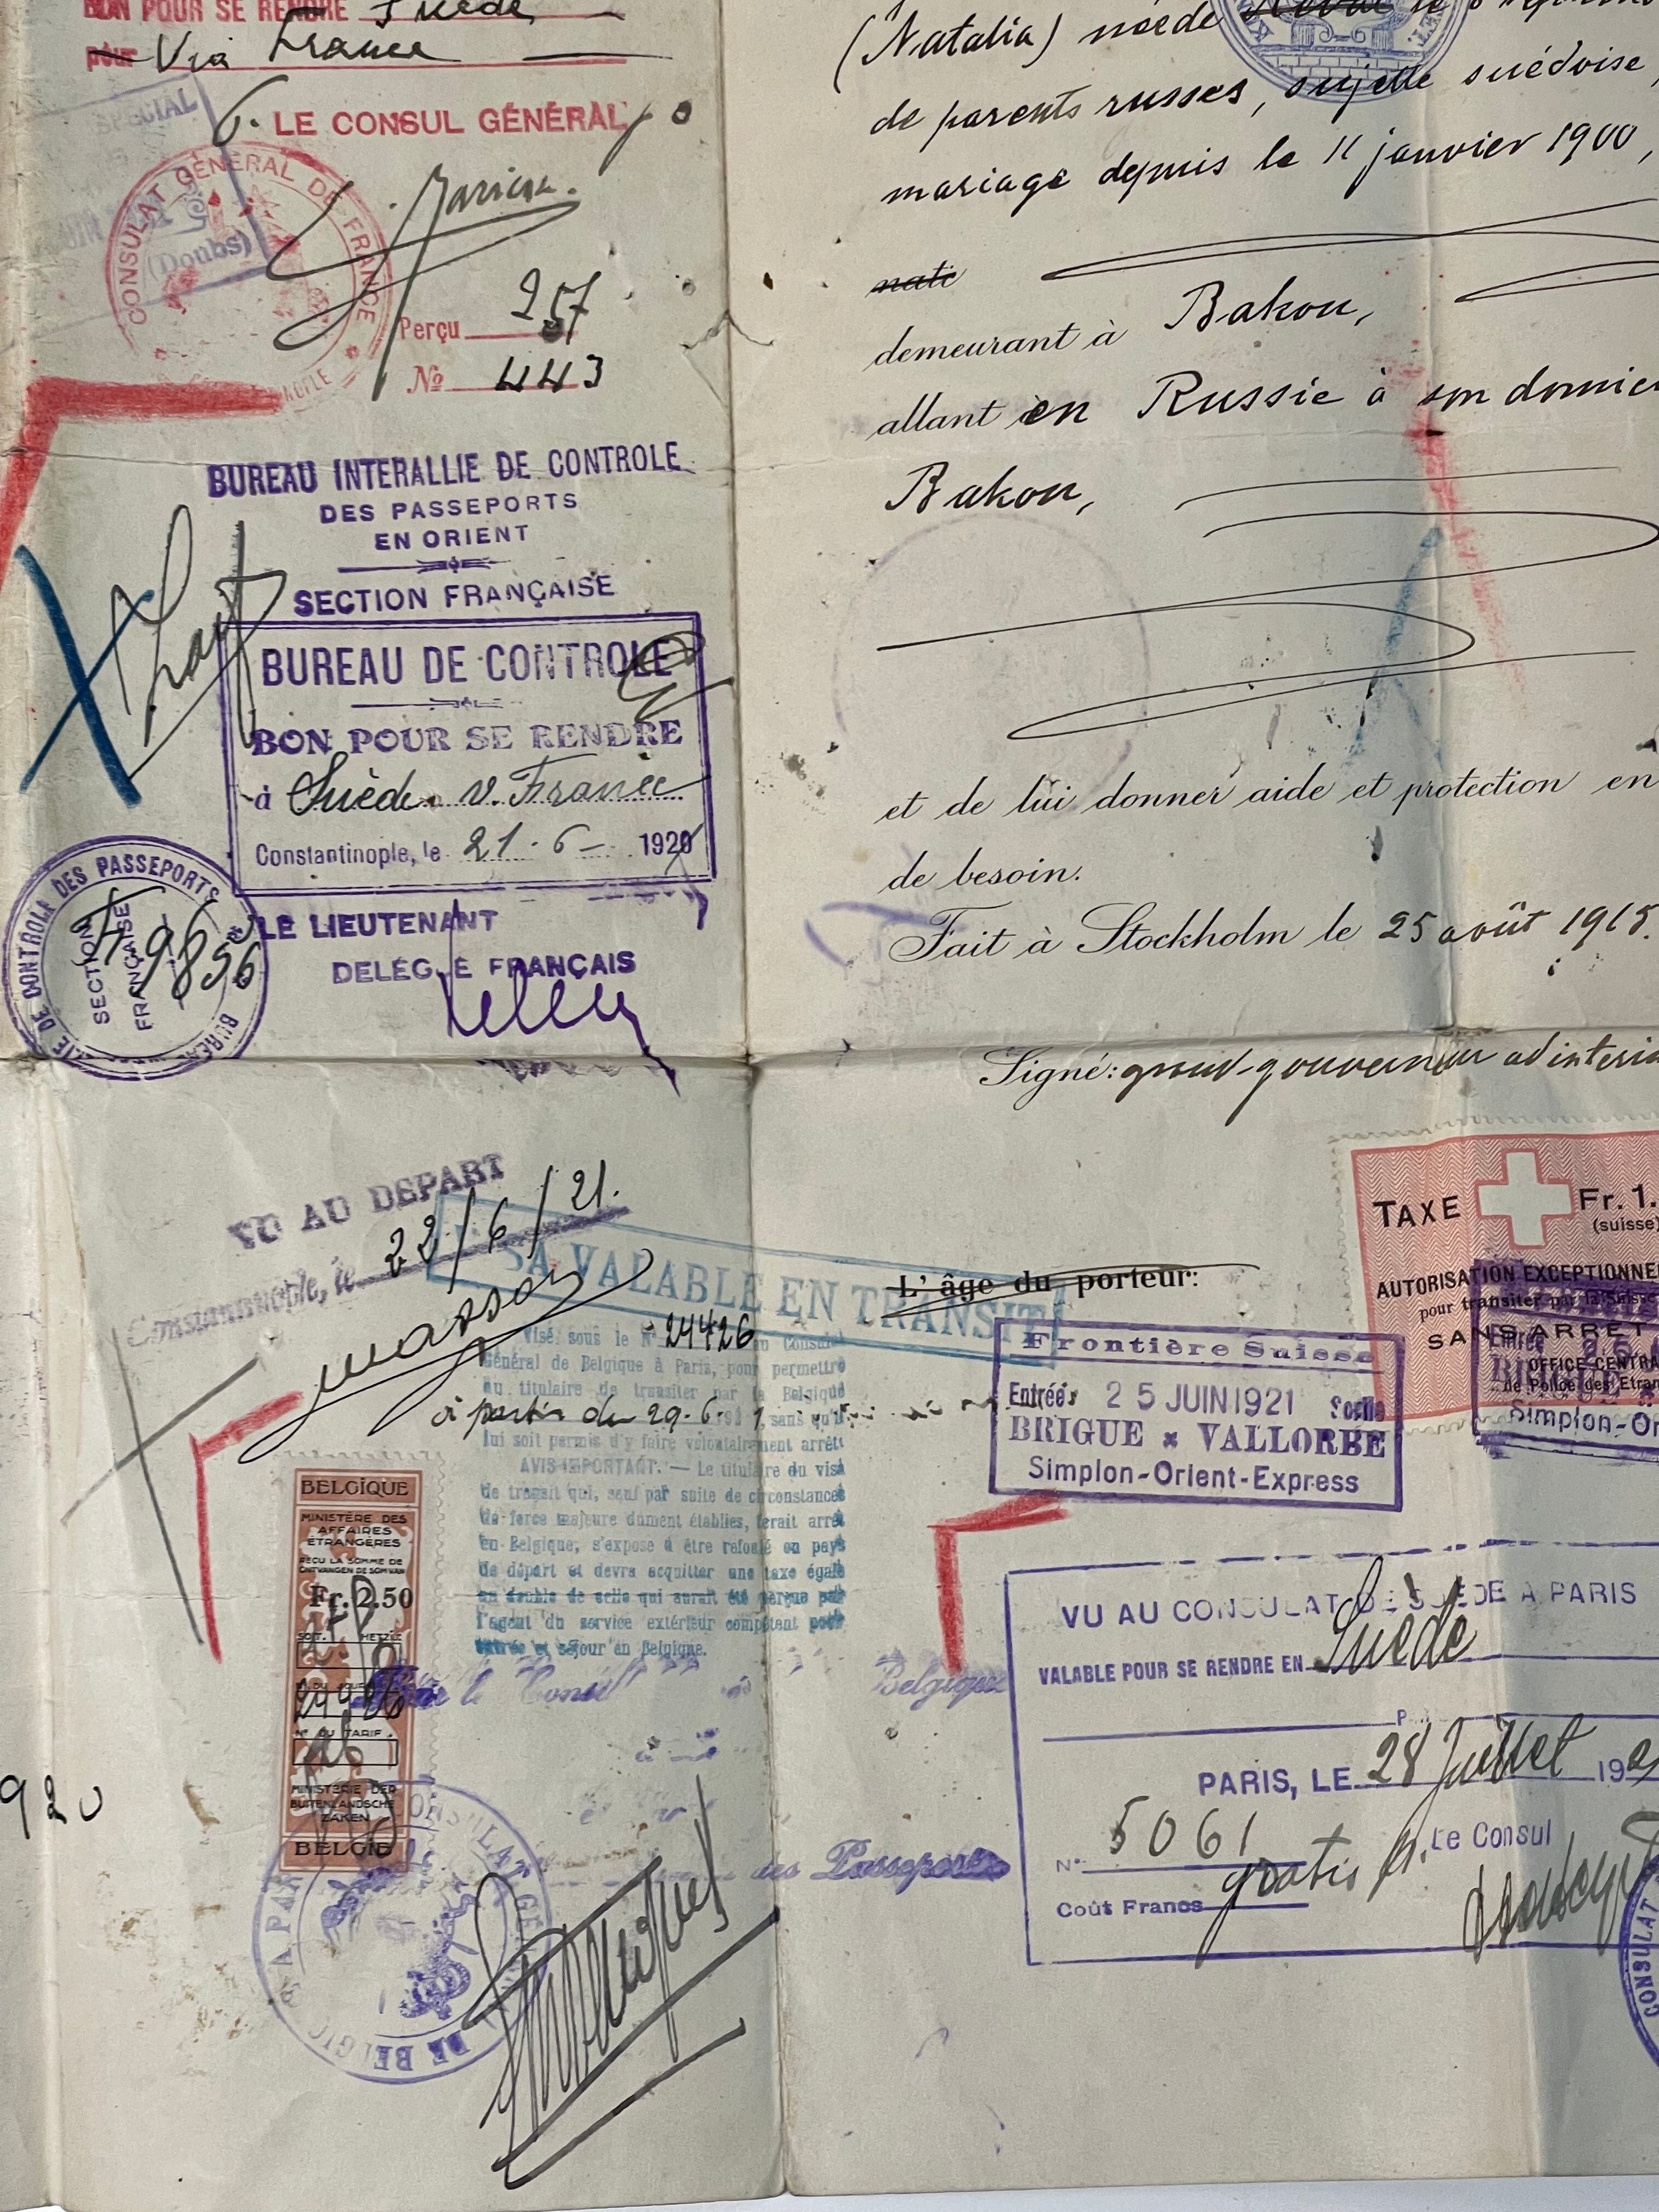 BON POUR SE RENDRE Suède
pour Via France
SPECIAL
LE CONSUL GÉNÉRAL
CONSULAT GÉNÉRAL DE FRANCE
(Doubs)
Perçu 257
No 443
BUREAU INTERALLIE DE CONTROLE
DES PASSEPORTS
EN ORIENT
SECTION FRANÇAISE
BUREAU DE CONTROLE
BON POUR SE RENDRE
à Suède v. France
Constantinople, le 21-6- 1920
LE LIEUTENANT
DELEGUE FRANÇAIS
DE CONTROLE DES PASSEPORTS
SECTION
FRANÇAISE
(Natalia) née de
de parents russes, sujette suédoise,
mariage depuis le 11 janvier 1900,
demeurant à Bakou,
allant en Russie à son domici
Bakou,
et de lui donner aide et protection en
de besoin.
Fait à Stockholm le 25 août 1918.
Signé: grand-gouverneur ad interim
VU AU DEPART
Constantinople, le 22/6/21.
SA VALABLE EN TRANSIT
Visé sous le N° 24426 au Consulat
Général de Belgique à Paris, pour permettre
au titulaire de transiter par la Belgique
à partir du 29.6. 1 sans qu'il
lui soit permis d'y faire volontairement arrêt
AVIS IMPORTANT. — Le titulaire du visa
de transit qui, sauf par suite de circonstances
de force majeure dûment établies, ferait arrêt
en Belgique, s'expose à être refoulé en pays
de départ et devra acquitter une taxe égale
au double de celle qui aurait été perçue par
l'agent du service extérieur compétent pour
entrée et séjour en Belgique.
BELGIQUE
MINISTÈRE DES
AFFAIRES
ÉTRANGÈRES
REÇU LA SOMME DE
ONTVANGEN DE SOM VAN
Fr. 2.50
N° DU TARIF
MINISTERIE DER
BUITENLANDSCHE
ZAKEN
BELGIË
le Consul
Belgique
des Passeports
920
L'âge du porteur:
TAXE Fr. 1.
(suisse)
AUTORISATION EXCEPTIONNE
pour transiter par la Suisse
SANS ARRÊT
OFFICE CENTRA
de Police des Etran
Entrée
BRIGUE
Simplon-Or
Frontière Suisse
Entrée 25 JUIN 1921 Sortie
BRIGUE × VALLORBE
Simplon-Orient-Express
VU AU CONSULAT DE SUÈDE A PARIS
VALABLE POUR SE RENDRE EN Suède
PARIS, LE 28 Juillet 192
N° 5061
Le Consul
Coût Francs gratis
CONSULAT